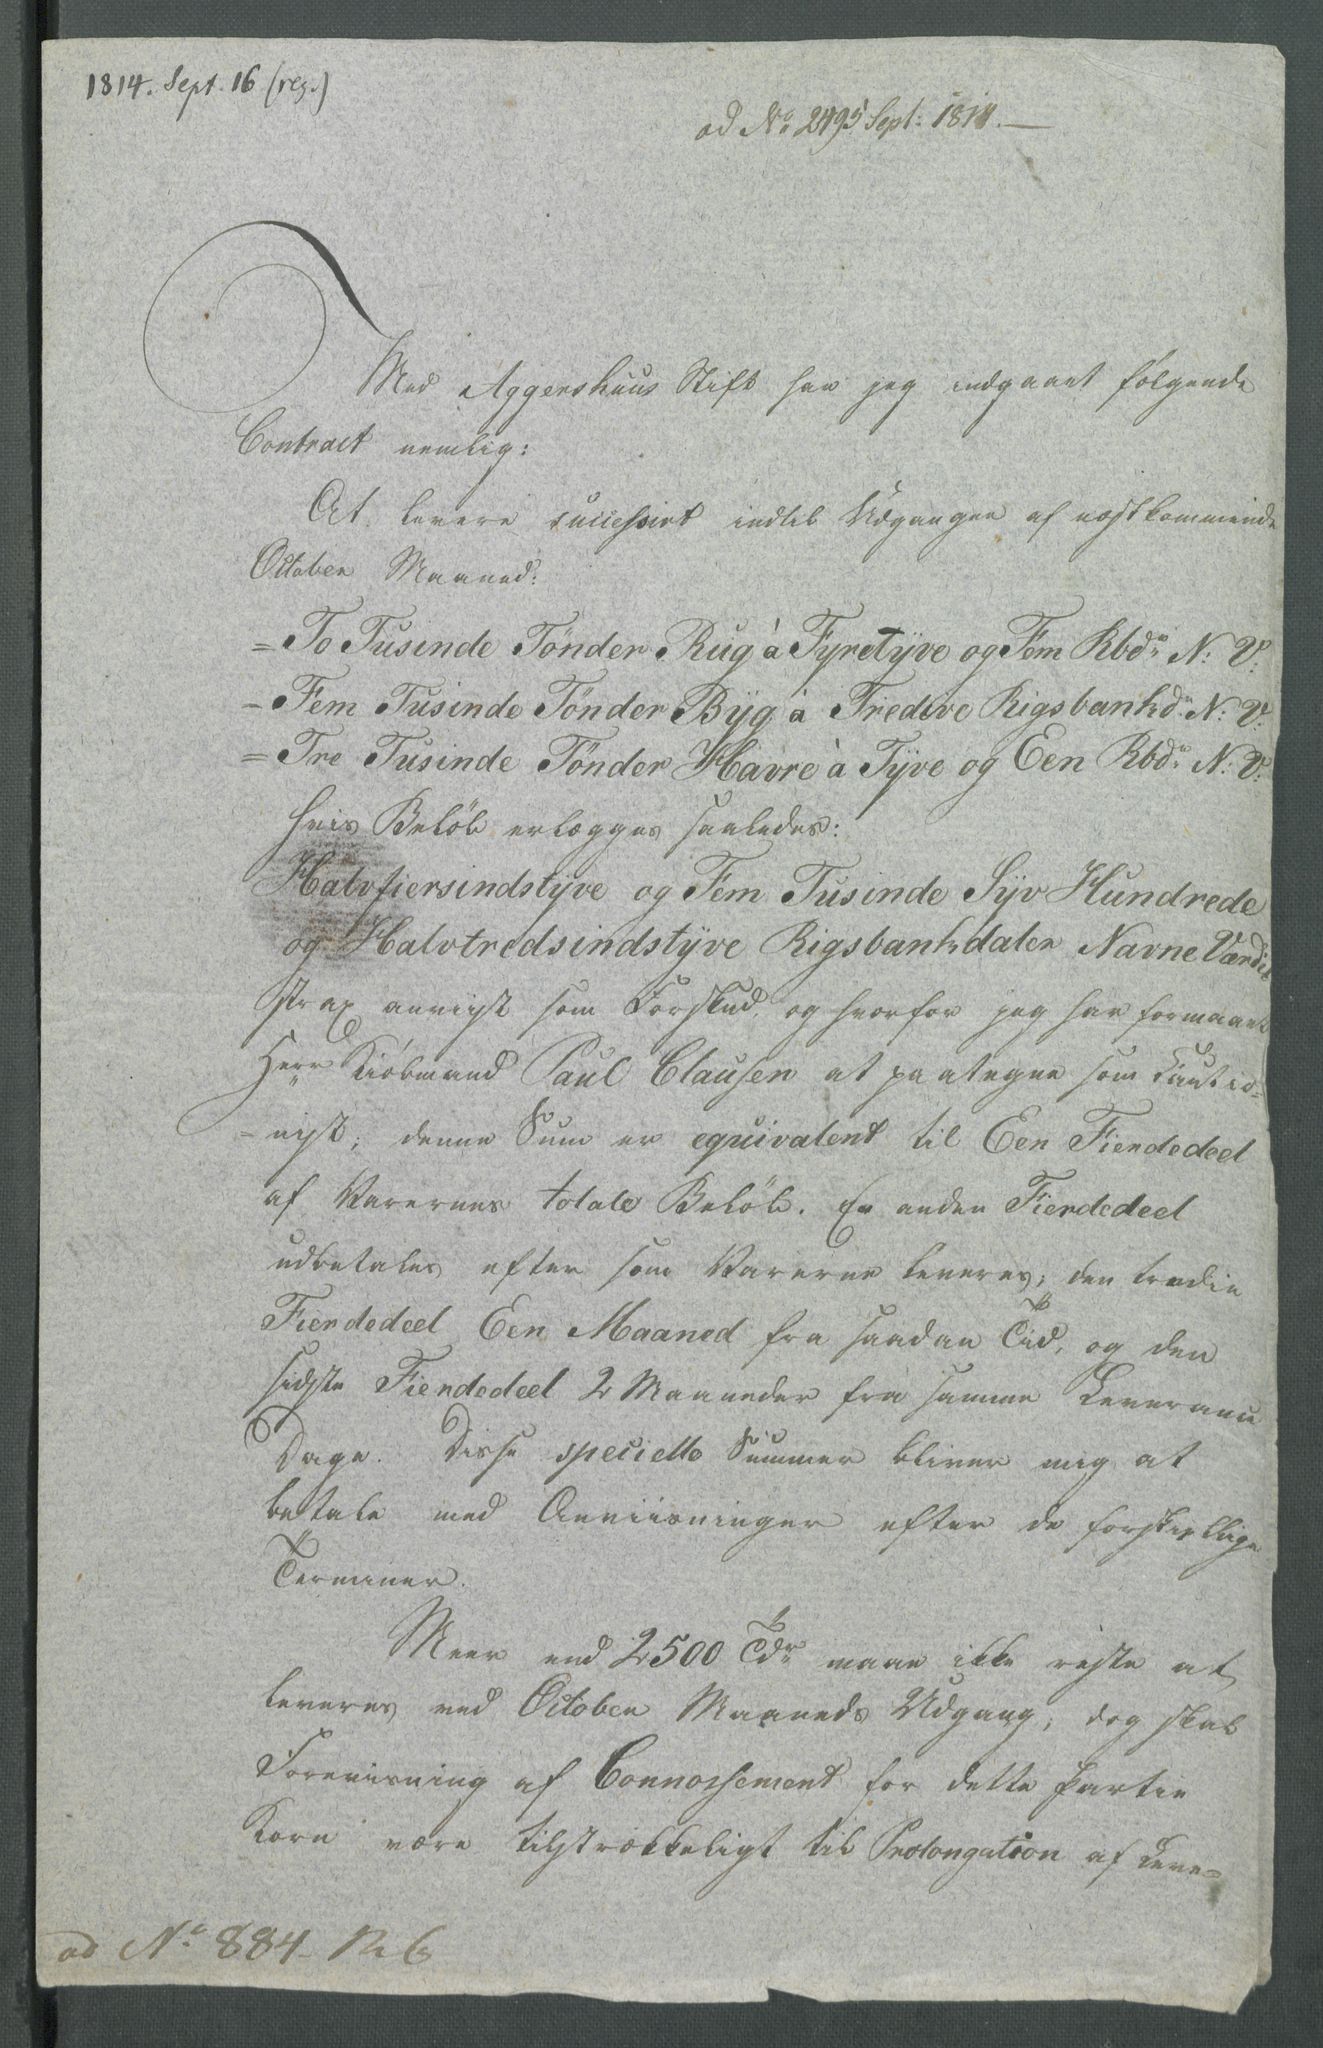 1814. Sept. 16 (reg.)
ad No 2495 Sept: 1814.
Med Aggershuus Stift har jeg indgaaet følgende
Contract nemlig:
At levere successivt indtil Udgangen af næstkommende
October Maaned:
= To Tusinde Tönder Rug à Fyretÿve og Fem Rbdr N: V:
= Fem Tusinde Tönder Bÿg à Tredive Rigsbankdr N: V:
= Tre Tusinde Tönder Havre à Tÿve og Een Rbdr N: V:
hvis Beløb erlægges saaledes:
Halvfiersindstÿve og Fem Tusinde Sÿv Hundrede
og Halvtredsindstÿve Rigsbankdaler Navne Værdie
strax anviist som Forskud, og hvorfor jeg har formaaet
Herr Kiöbmand Paul Clausen at paategne som Cautio-
-nist; denne Sum er equivalent til Een Fierdedeel
af Varernes totale Beløb. En anden Fierdedeel
udbetales efter som Varerne leveres; den tredie
Fierdedeel Een Maaned fra saadan Tid, og den
sidste Fierdedeel 2 Maaneder fra samme Leverance
Dage. Disse specielle Summer bliver mig at
betale med Anviisninger efter de forskiellige
Terminer.
Meer end 2500 Tdr maae ikke reste at
leveres ved October Maaneds Udgang; dog skal
Forevisning af Connossement for dette Partie
Korn være tilstrækkeligt til Prolongation af Leve-
ad No 884